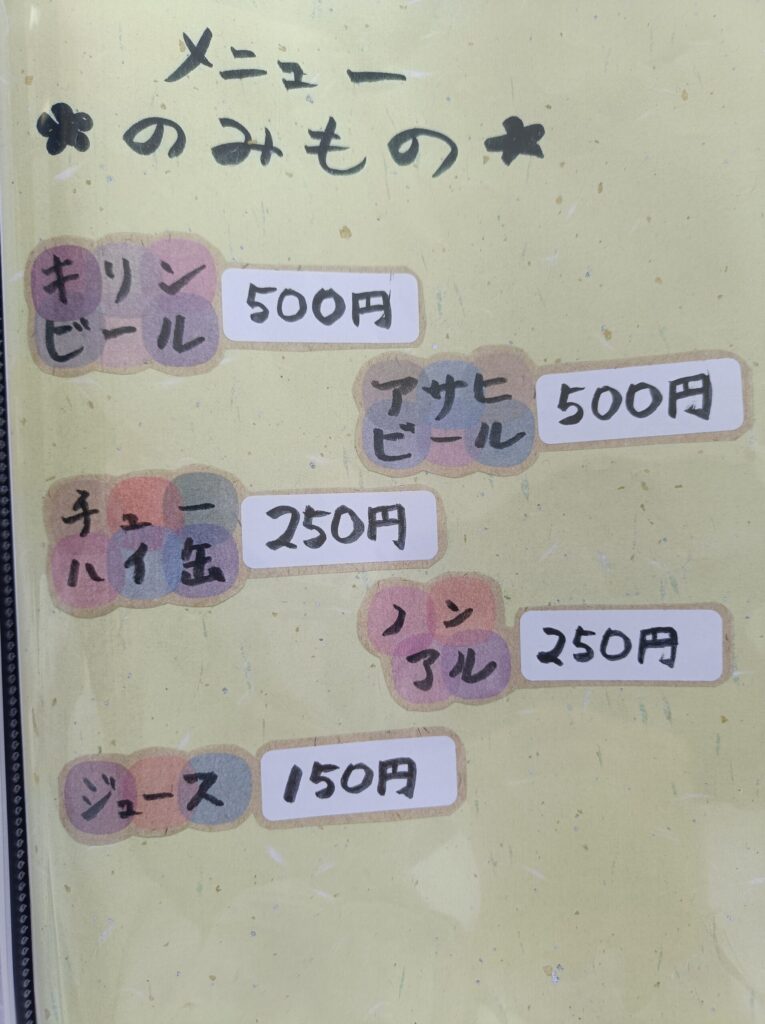 メニュー
のみもの
キリン
ビール
500円
アサヒ
ビール
500円
チュー
ハイ缶
250円
ノン
アル
250円
ジュース
150円